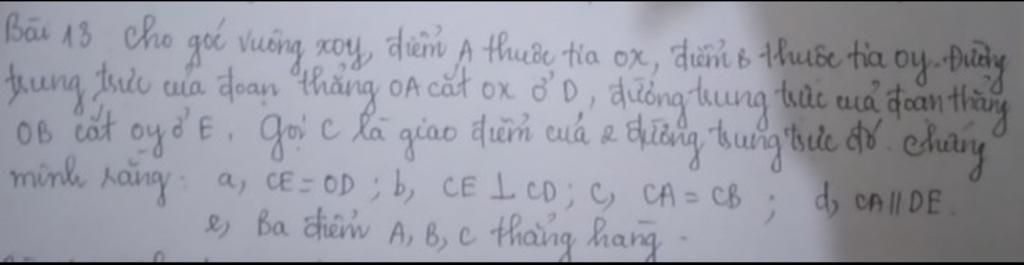 Bài 13 Cho góc vuông xoy, điểm A thuộc tia ox, điểm B thuộc tia oy. Đường
trung trực của đoạn thẳng OA cắt ox ở D, đường trung trực của đoạn thẳng
OB cắt oy ở E. Gọi C là giao điểm của 2 đường trung trực đó. Chứng
minh rằng: a, CE = OD ; b, CE ⊥ CD ; c, CA = CB ; d, CA // DE.
e, Ba điểm A, B, C thẳng hàng.